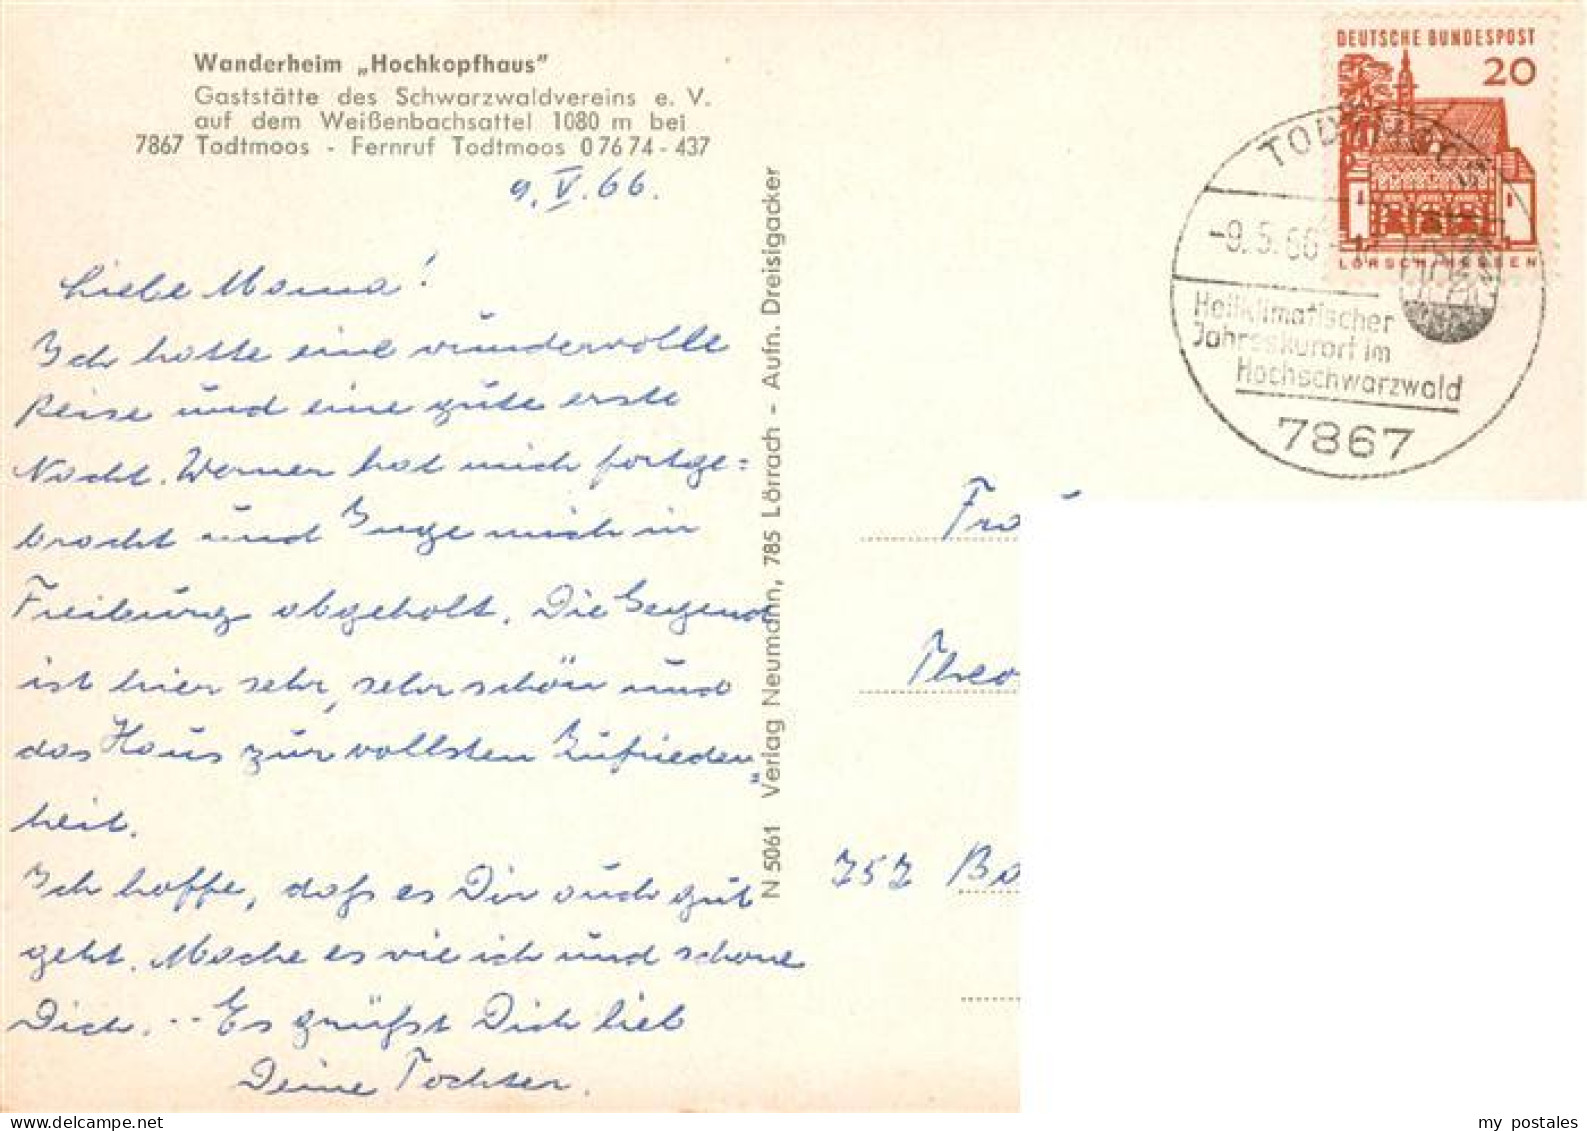 Wanderheim „Hochkopfhaus"
Gaststätte des Schwarzwaldvereins e. V.
auf dem Weißenbachsattel 1080 m bei
7867 Todtmoos - Fernruf Todtmoos 0 76 74 - 437
9. V. 66.
Liebe Mama!
Ich hatte eine wundervolle
Reise und eine gute erste
Nacht. Werner hat mich fortge=
bracht und Inge mich in
Freiburg abgeholt. Die Gegend
ist hier sehr, sehr schön und
das Haus zur vollsten Zufrieden„
heit.
Ich hoffe, daß es Dir auch gut
geht. Mache es wie ich und schone
Dich. -- Es grüßt Dich lieb
Deine Tochter.
N 5061 Verlag Neumann, 785 Lörrach - Aufn. Dreisigacker
DEUTSCHE BUNDESPOST
20
LORSCH/HESSEN
TODTMOOS
-9.5.66
Heilklimatischer
Jahreskurort im
Hochschwarzwald
7867
Frau
Theo
757 Ba
my postales